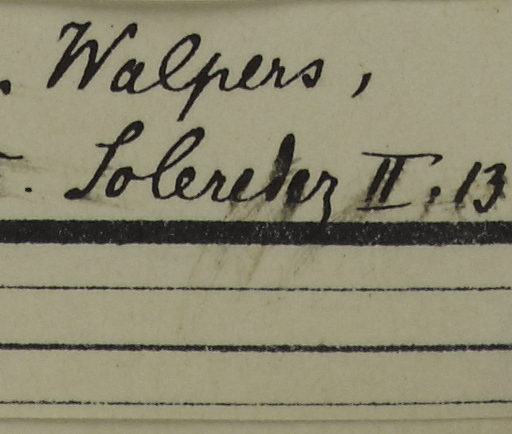 . Walpers,
. Solereder II. 13